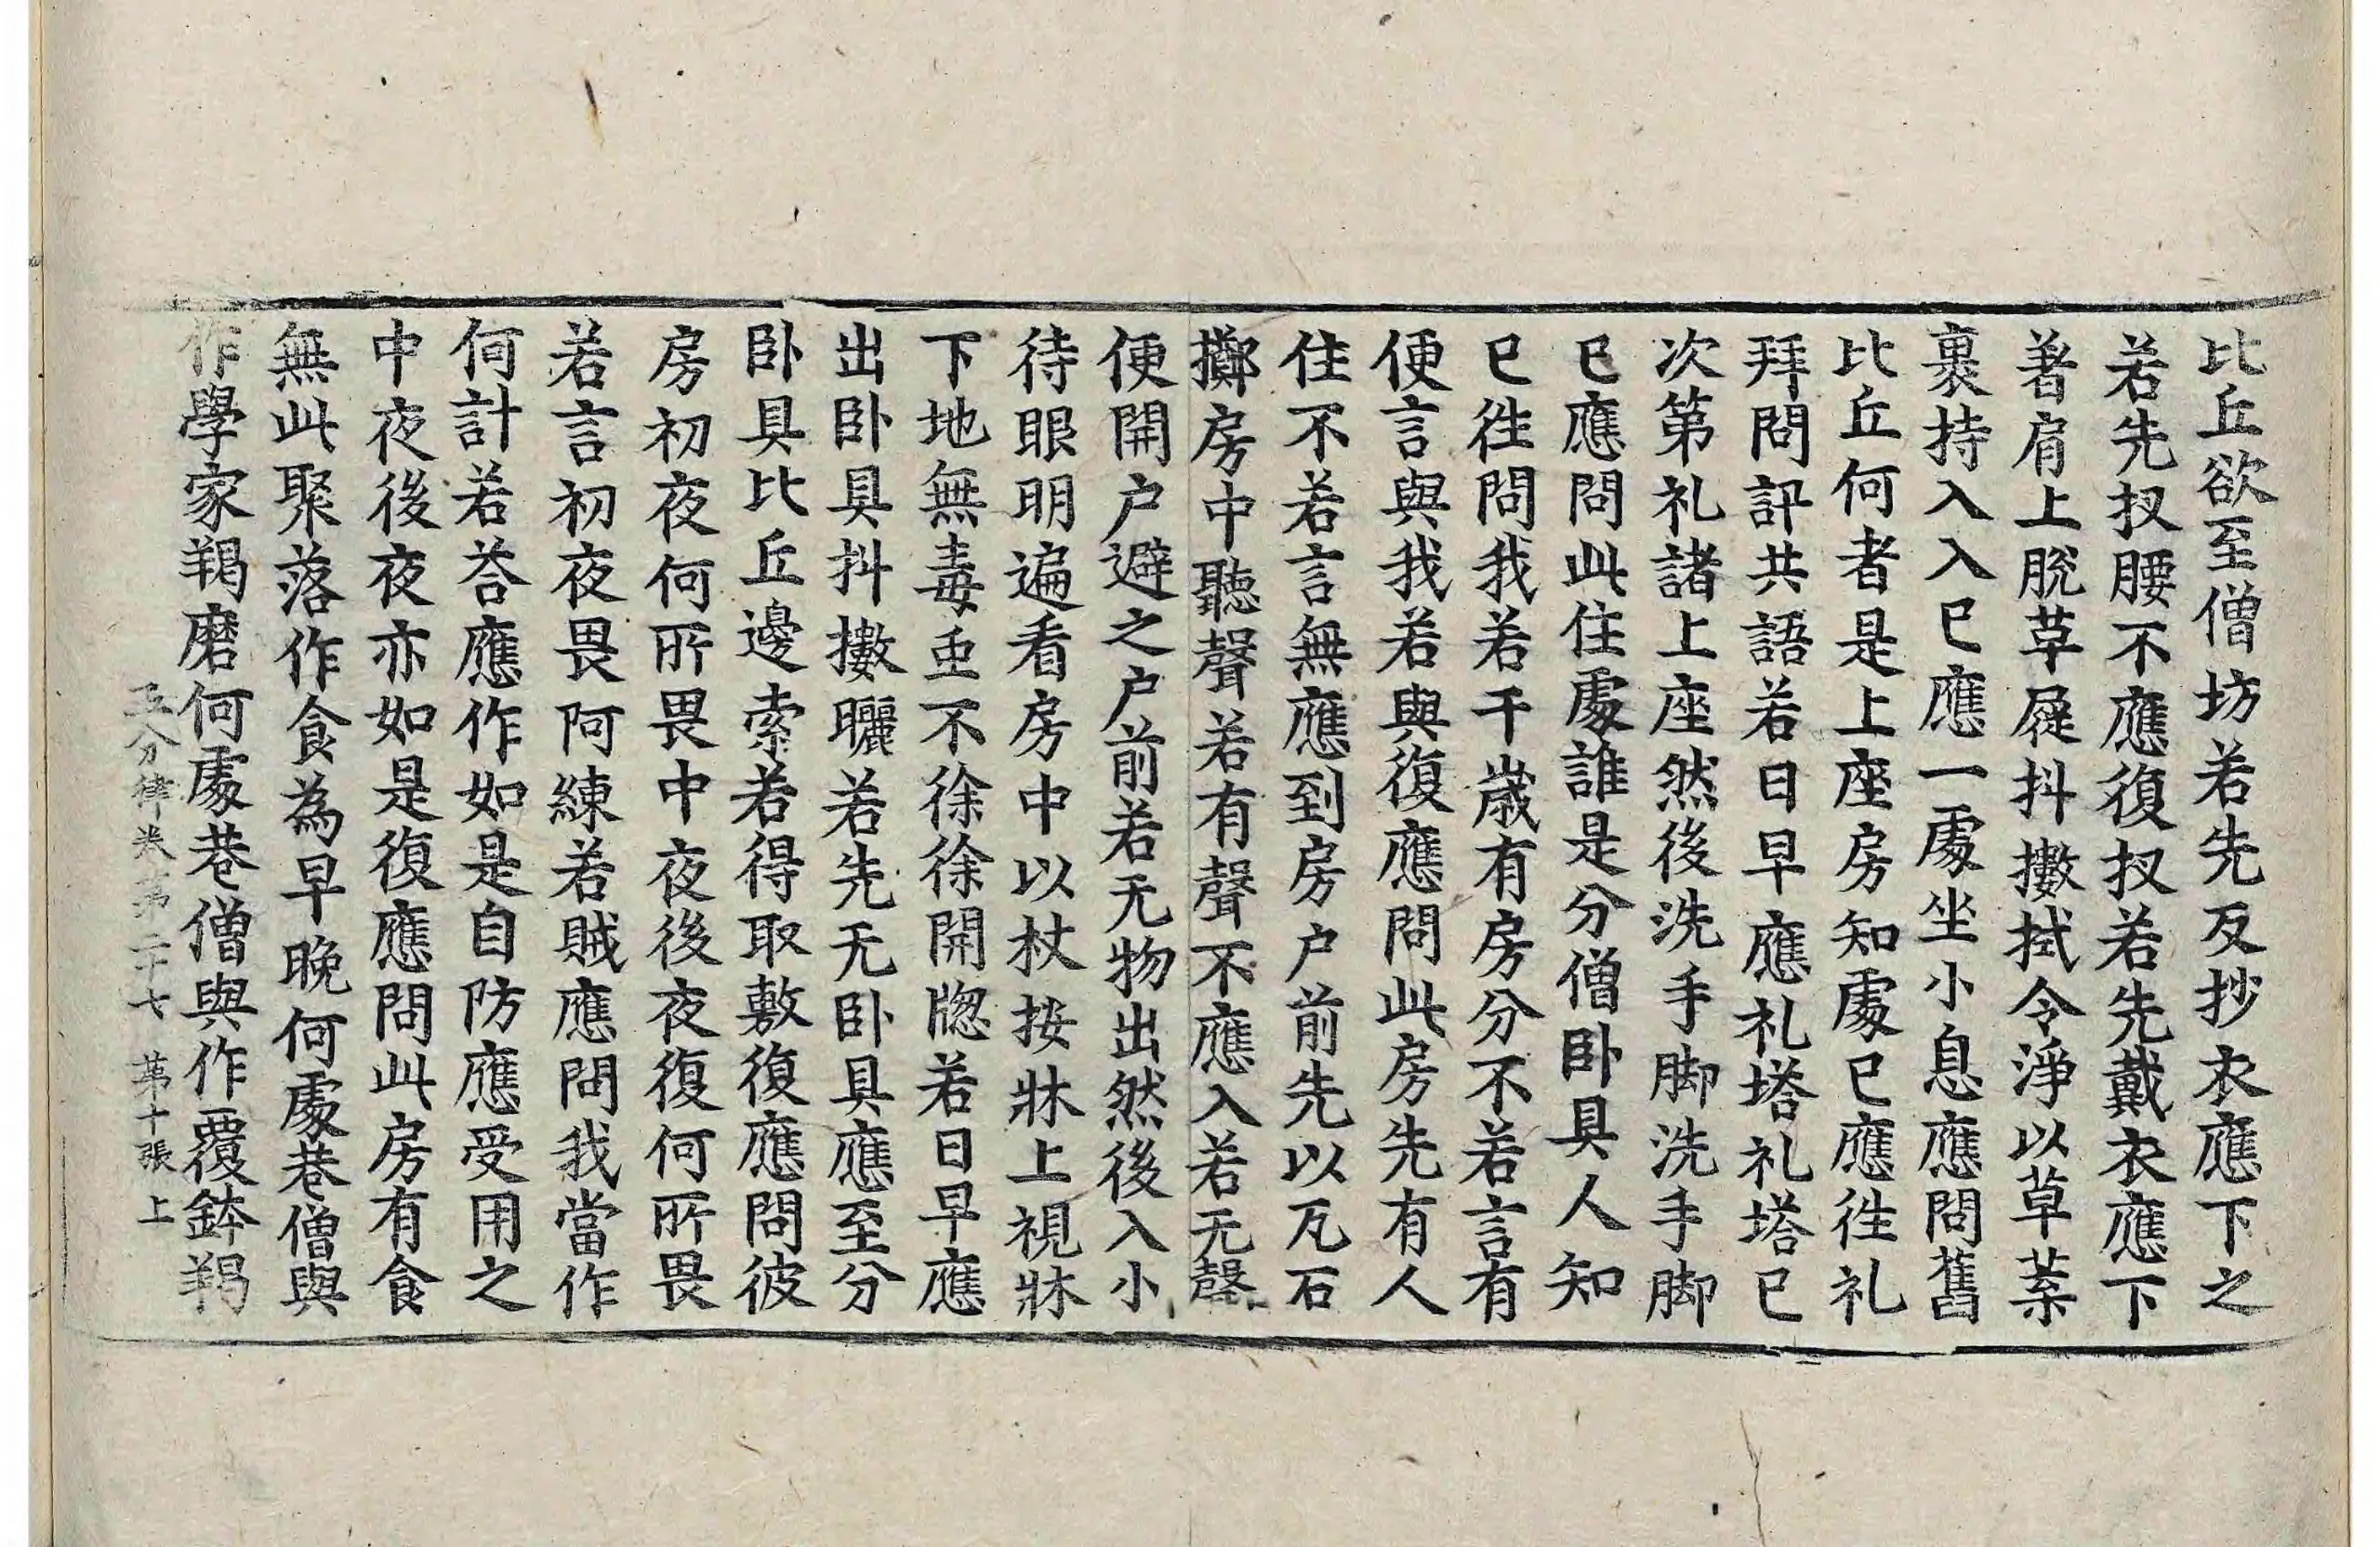 比丘欲至僧坊若先反抄衣應下之
若先扠腰不應復扠若先戴衣應下
著肩上脫草屣抖擻拭令淨以草葉
裹持入入已應一處坐小息應問舊
比丘何者是上座房知處已應往礼
拜問訊共語若日早應礼塔礼塔已
次第礼諸上座然後洗手脚洗手脚
已應問此住處誰是分僧卧具人知
已往問我若干歲有房分不若言有
便言與我若與復應問此房先有人
住不若言無應到房户前先以瓦石
擲房中聽聲若有聲不應入若无聲
便開户避之户前若无物出然後入小
待眼明遍看房中以杖按牀上視牀
下地無毒虫不徐徐開牎若日早應
出卧具抖擻曬若先无卧具應至分
卧具比丘邊索若得取敷復應問彼
房初夜何所畏中夜後夜復何所畏
若言初夜畏阿練若賊應問我當作
何計若荅應作如是自防應受用之
中夜後夜亦如是復應問此房有食
無此聚落作食為早晚何處巷僧與
作學家羯磨何處巷僧與作覆鉢羯
五分律 第二十七 第十張 上